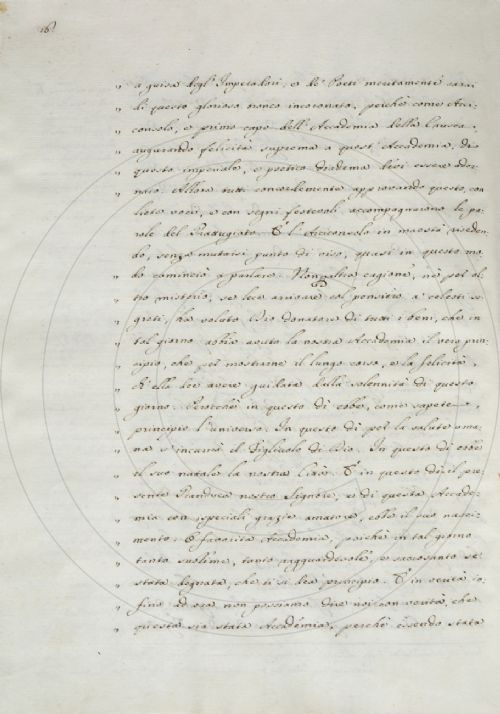 16
„ a guisa degl' Imperadori, e de' Poeti meritamente sarai
„ di questo glorioso ronco incoronato, perchè come Arci-
„ consolo, e primo capo dell' Accademia della Crusca,
„ augurando felicità suprema a quest' Accademia, di
„ questo imperiale, e poetico diadema devi essere ador-
„ nato. Allora tutti concordemente approvando questo, con
„ liete voci, e con segni festevoli accompagnarono le pa-
„ role del E l'Arciconsolo in maestà seden-
„ do, senza mutarsi punto di viso, quasi in questo mo-
„ do cominciò a parlare. Non altra cagione, nè per al-
„ tro misterio, se lece arrivare col pensiero a' celesti se-
„ greti, ha voluto Dio donatore di tutti i beni, che in
„ tal giorno abbia avuto la nostra Accademia il vero prin-
„ cipio, che per mostrarne il lungo corso, e la felicità,
„ ch' ella dee avere guidata dalla solennità di questo
„ giorno. Perocchè in questo dì ebbe, come sapete,
„ principio l'universo. In questo dì per la salute uma-
„ na s' incarnò il Figliuolo di Dio. In questo dì ebbe
„ il suo natale la nostra Città. E in questo dì il pre-
„ sente Granduca nostro Signore, e di questa Accade-
„ mia con ispeciali grazie amatore, ebbe il suo nasci-
„ mento. O favorita Accademia, poichè in tal giorno
„ tanto sublime, tanto ragguardevole, e sacrosanto se'
„ stata degnata, che ti si dea principio. E in verità in-
„ fino ad ora non possiamo dire noi con verità, che
„ questa sia stata Accademia, perchè essendo stata